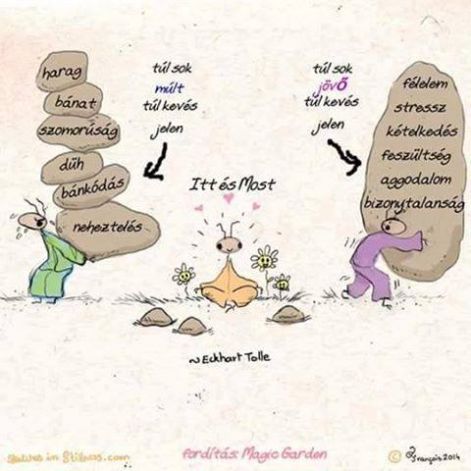 harag
bánat
szomorúság
düh
bánkódás
neheztelés
túl sok
múlt
túl kevés
jelen
Itt és Most
túl sok
jövő
túl kevés
jelen
félelem
stressz
kételkedés
feszültség
aggodalom
bizonytalanság
~Eckhart Tolle
Sketches in Stillness.com
fordítás: Magic Garden
© François 2014